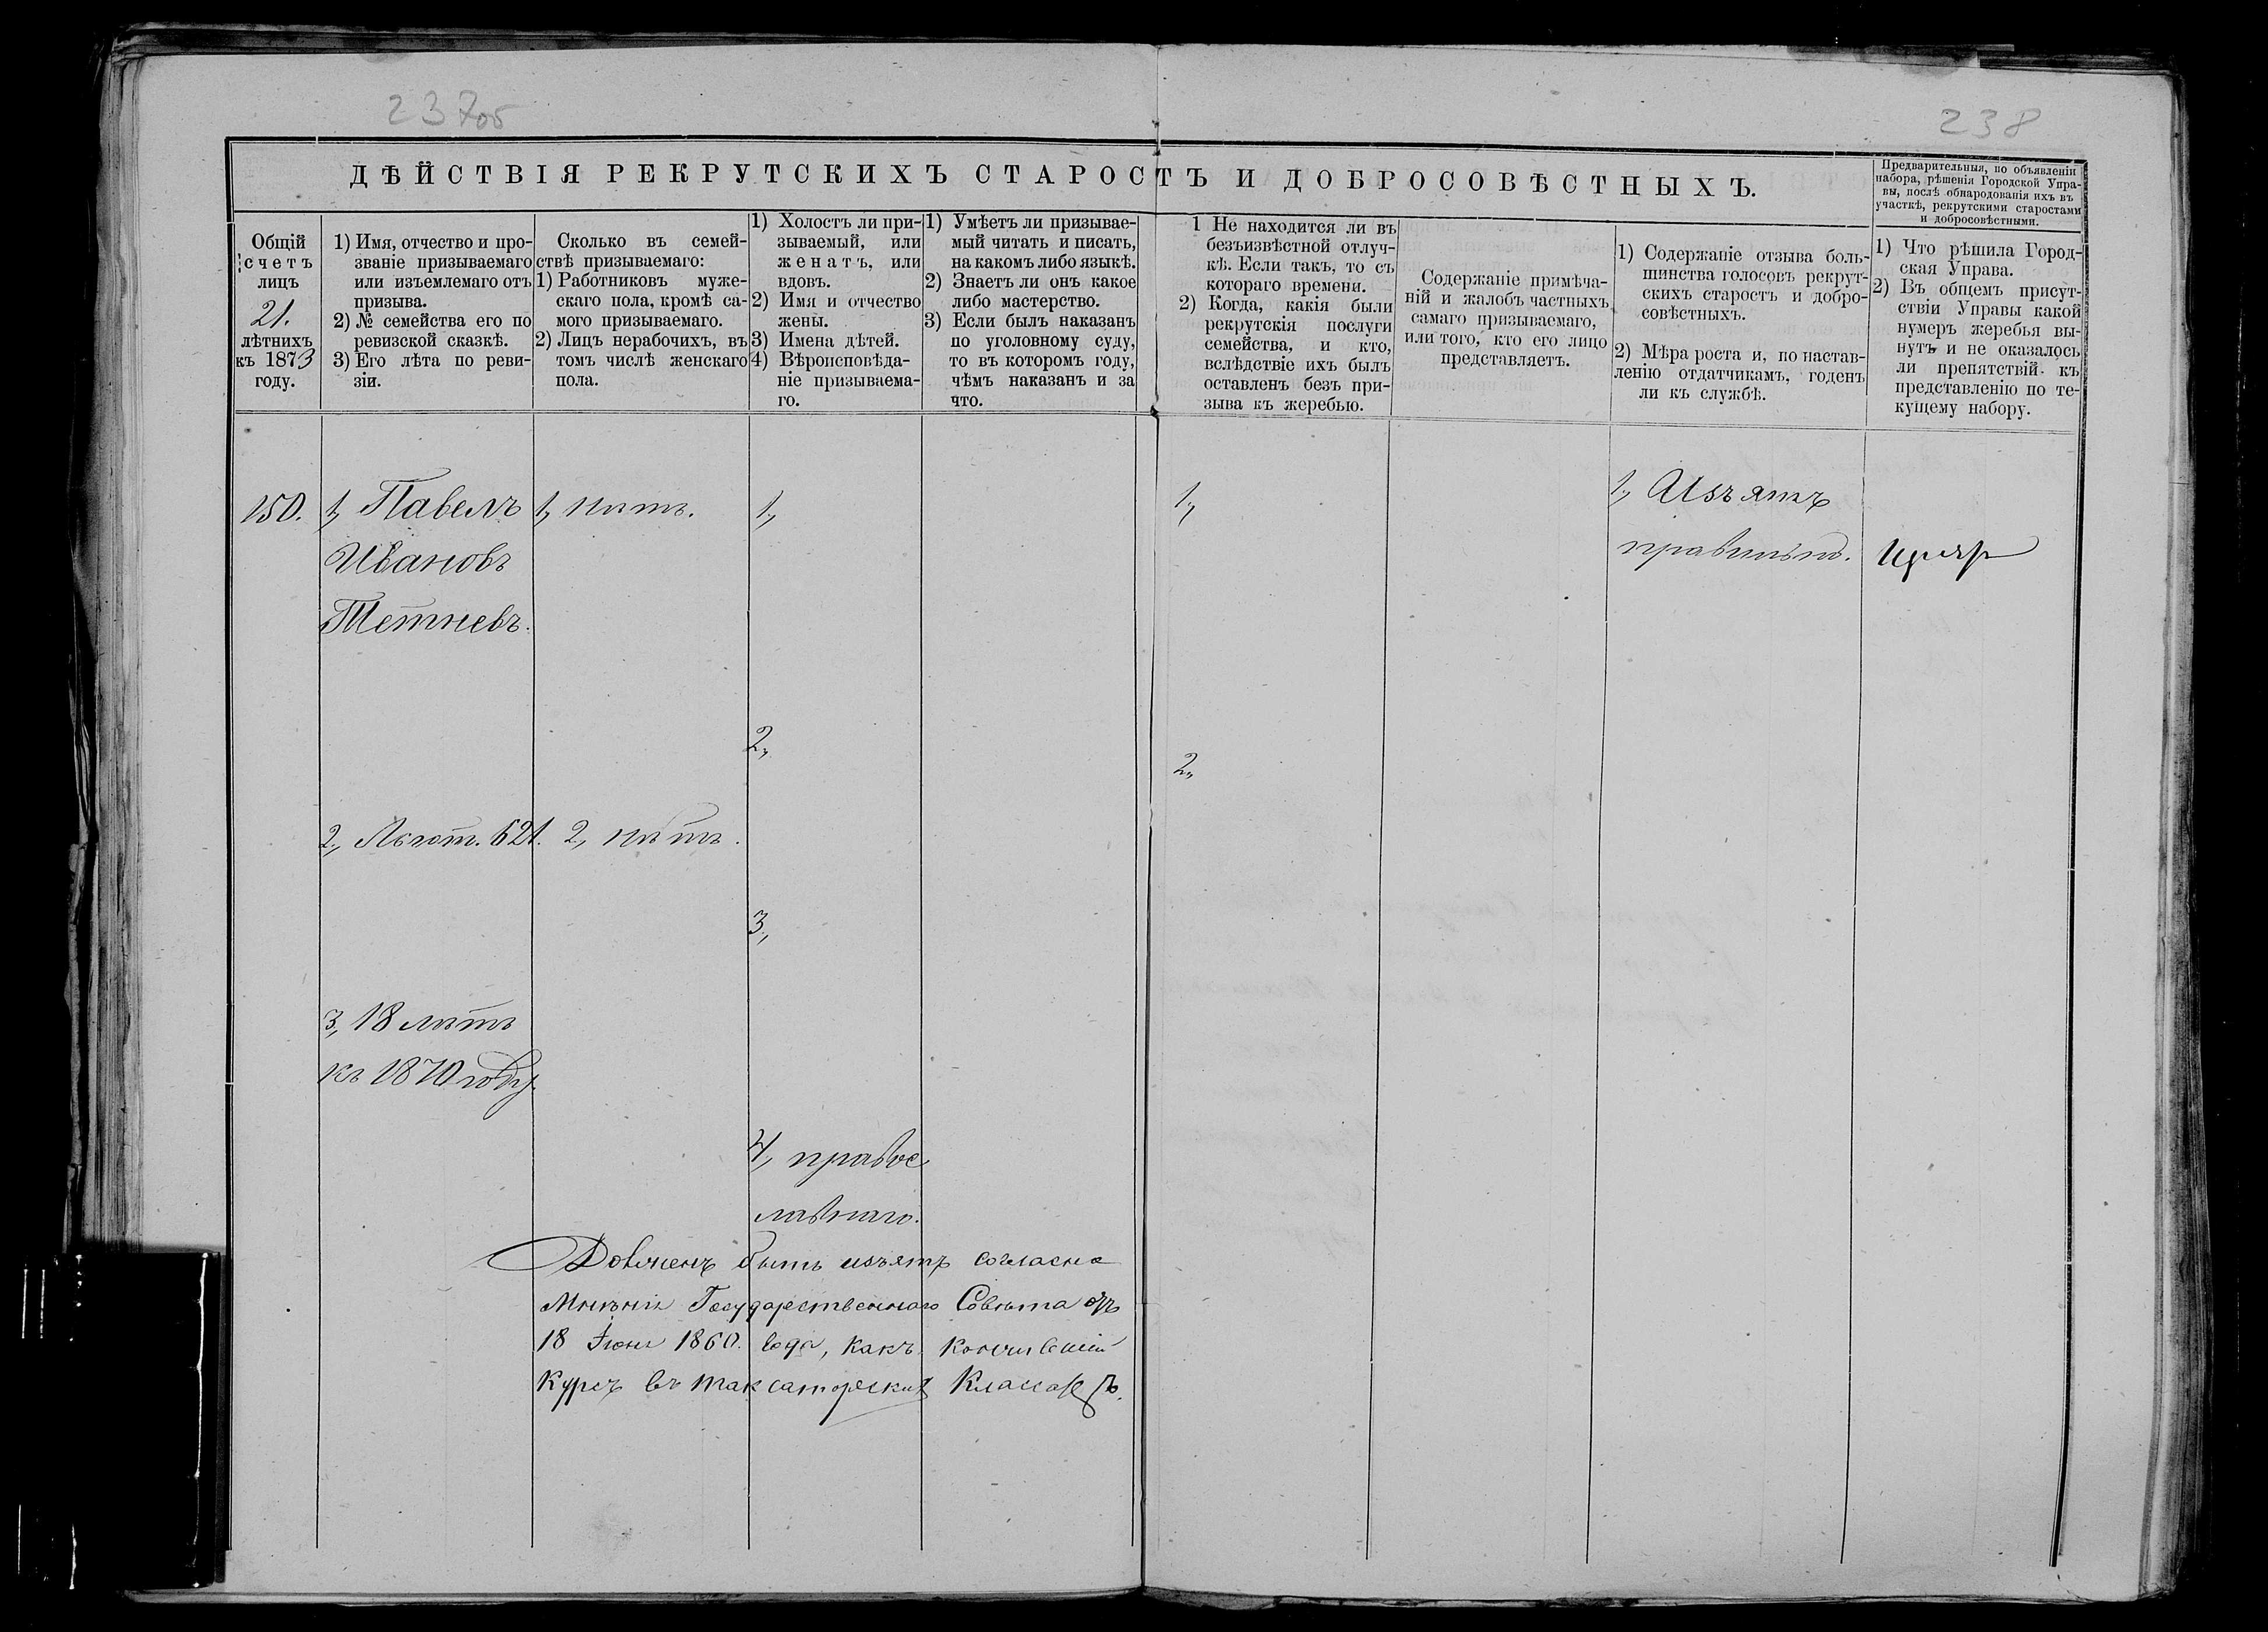 237об
238
ДѢЙСТВІЯ РЕКРУТСКИХЪ СТАРОСТЪ И ДОБРОСОВѢСТНЫХЪ.
Предварительныя, по объявленіи
набора, рѣшенія Городской Упра-
вы, послѣ обнародованія ихъ въ
участкѣ, рекрутскими старостами
и добросовѣстными.
Общій
счетъ
лицъ
21.
лѣтнихъ
къ 1873
году.
1) Имя, отчество и про-
званіе призываемаго
или изъемлемаго отъ
призыва.
2) № семейства его по
ревизской сказкѣ.
3) Его лѣта по реви-
зіи.
Сколько въ семей-
ствѣ призываемаго:
1) Работниковъ муже-
скаго пола, кромѣ са-
мого призываемаго.
2) Лицъ нерабочихъ, въ
томъ числѣ женскаго
пола.
1) Холостъ ли при-
зываемый, или
женатъ, или
вдовъ.
2) Имя и отчество
жены.
3) Имена дѣтей.
4) Вѣроисповѣда-
ніе призываема-
го.
1) Умѣетъ ли призывае-
мый читать и писать,
на какомъ либо языкѣ.
2) Знаетъ ли онъ какое
либо мастерство.
3) Если былъ наказанъ
по уголовному суду,
то въ которомъ году,
чѣмъ наказанъ и за
что.
1 Не находится ли въ
безъизвѣстной отлуч-
кѣ. Если такъ, то съ
котораго времени.
2) Когда, какія были
рекрутскія послуги
семейства, и кто,
вслѣдствіе ихъ былъ
оставленъ безъ при-
зыва къ жеребью.
Содержаніе примѣча-
ній и жалобъ частныхъ,
самаго призываемаго,
или того, кто его лицо
представляетъ.
1) Содержаніе отзыва боль-
шинства голосовъ рекрут-
скихъ старостъ и добро-
совѣстныхъ.
2) Мѣра роста и, по настав-
ленію отдатчикамъ, годенъ
ли къ службѣ.
1) Что рѣшила Город-
ская Управа.
2) Въ общемъ присут-
ствіи Управы какой
нумеръ жеребья вы-
нутъ и не оказалось
ли препятствій къ
представленію по те-
кущему набору.
150.
1, Павелъ
Ивановъ
Тетневъ.
2, Льгот. 621.
3, 18 лѣтъ
къ 1870 году.
1, нѣтъ.
2, нѣтъ.
1,
2,
3,
4, правос
лавнаго.
Долженъ быть изъятъ согласно
Мнѣнія Государственнаго Совѣта отъ
18 Іюня 1860. года, какъ кончившій
Курсъ въ таксаторскихъ Классахъ.
1,
2,
1, Изъятъ
правильно.